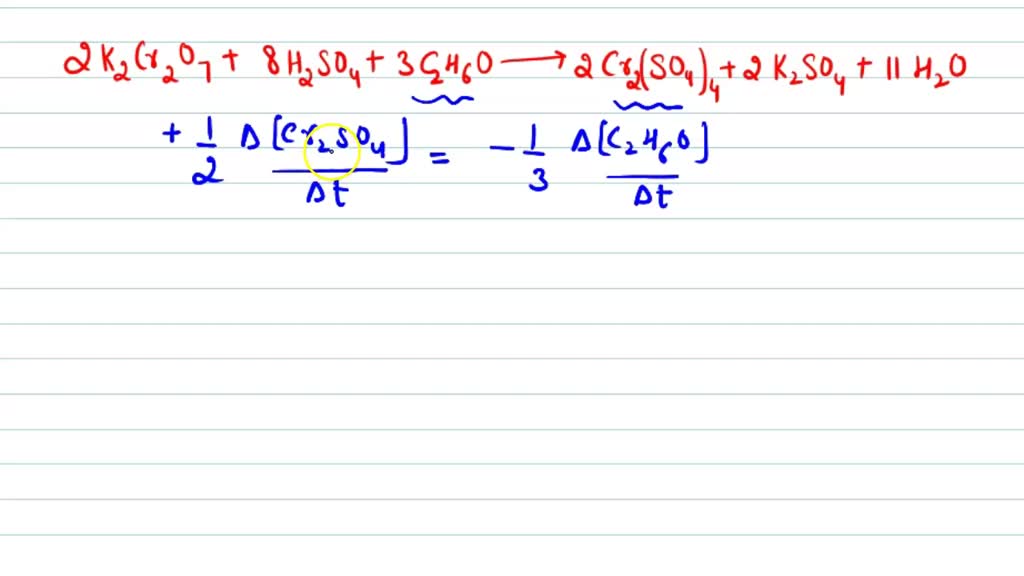 2 K₂Cr₂O₇ + 8 H₂SO₄ + 3 C₂H₆O ⟶ 2 Cr₂(SO₄)₄ + 2 K₂SO₄ + 11 H₂O
+ 1/2 Δ[Cr₂SO₄]/Δt = - 1/3 Δ[C₂H₆O]/Δt